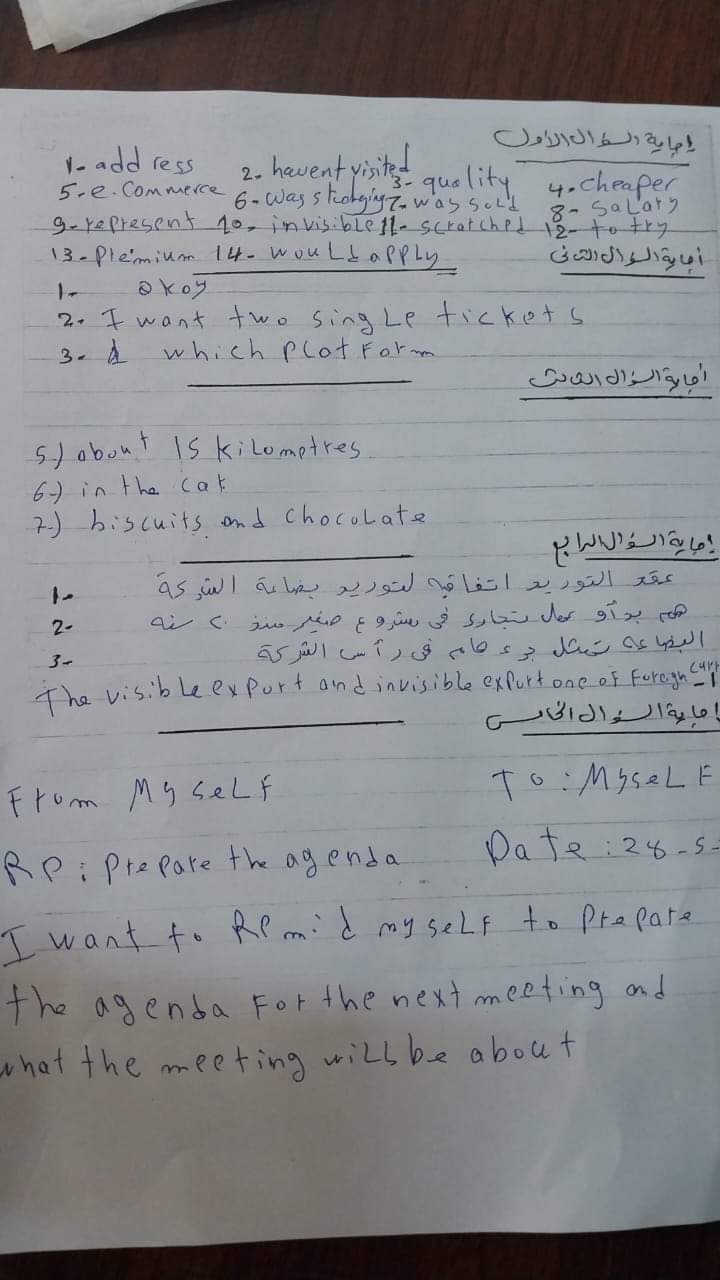 إجابة السؤال الأول
1- address 2- havent visited 3- quality 4- cheaper
5- e. Commerce 6- was 7- was sold 8- salary
9- represent 10- invisible 11- scratched 12- to try
13- Premium 14- would apply
أجابة السؤال الثانى
1- okay
2- I want two single tickets
3- which platform
أجابة السؤال الثالث
5-) about 15 kilometres
6-) in the car
7-) biscuits and chocolate
إجابة السؤال الرابع
1- عقد التوريد اتفاقيه لتوريد بضاعة الشركة
2- هم بدأو عمل تجارى فى مشروع صغير منذ ٢٠ سنه
3- البضاعة تمثل جزء هام فى رأس الشركة
The visible export and invisible export one of foreign
إجابة السؤال الخامس
From Myself To: Myself
Re: prepare the agenda Date: 28-5-
I want to myself to prepare
the agenda For the next meeting and
what the meeting will be about